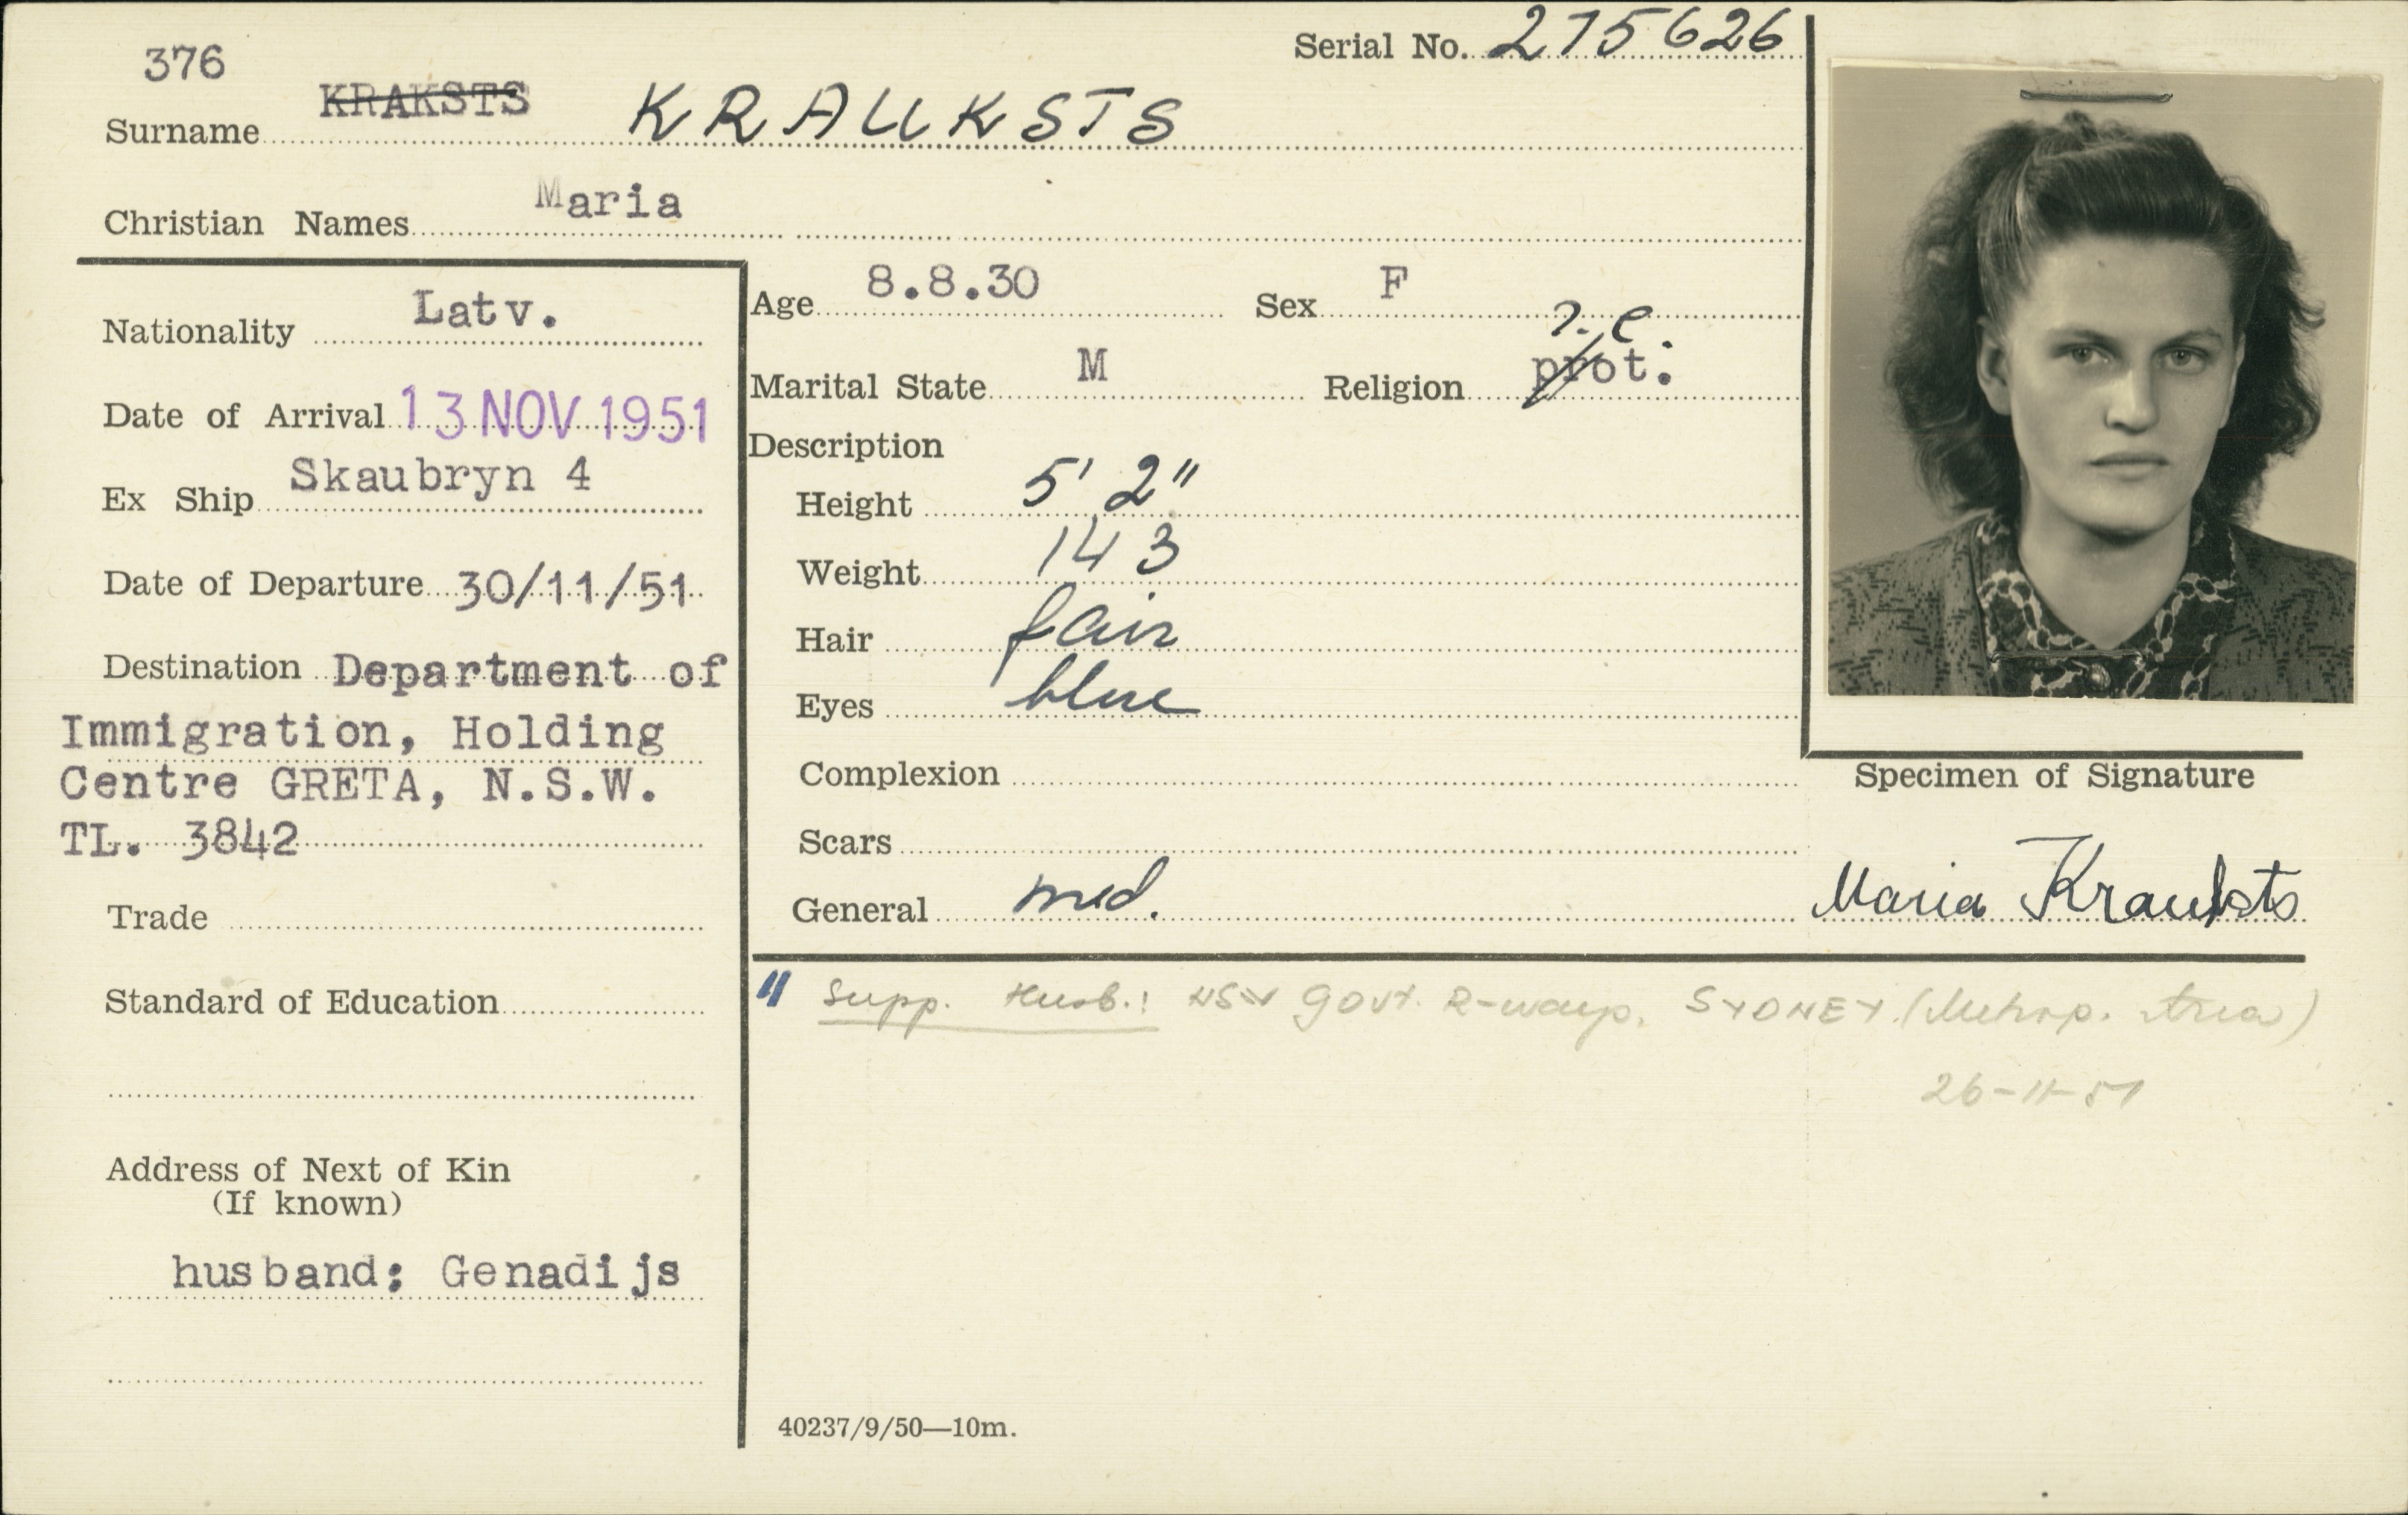 376
Serial No. 275626
Surname KRAKSTS KRAUKSTS
Christian Names Maria
Nationality Latv.
Date of Arrival 13 NOV 1951
Ex Ship Skaubryn 4
Date of Departure 30/11/51
Destination Department of
Immigration, Holding
Centre GRETA, N.S.W.
TL. 3842
Trade
Standard of Education
Address of Next of Kin
(If known)
husband: Genadijs
Age 8.8.30 Sex F
Marital State M Religion prot.
Description
Height 5' 2"
Weight 143
Hair fair
Eyes blue
Complexion
Scars
General med.
Specimen of Signature
Maria Krauksts
Supp. Husb.: NSW Govt. R-ways, SYDNEY (Metrop. Area)
26-11-51
40237/9/50—10m.